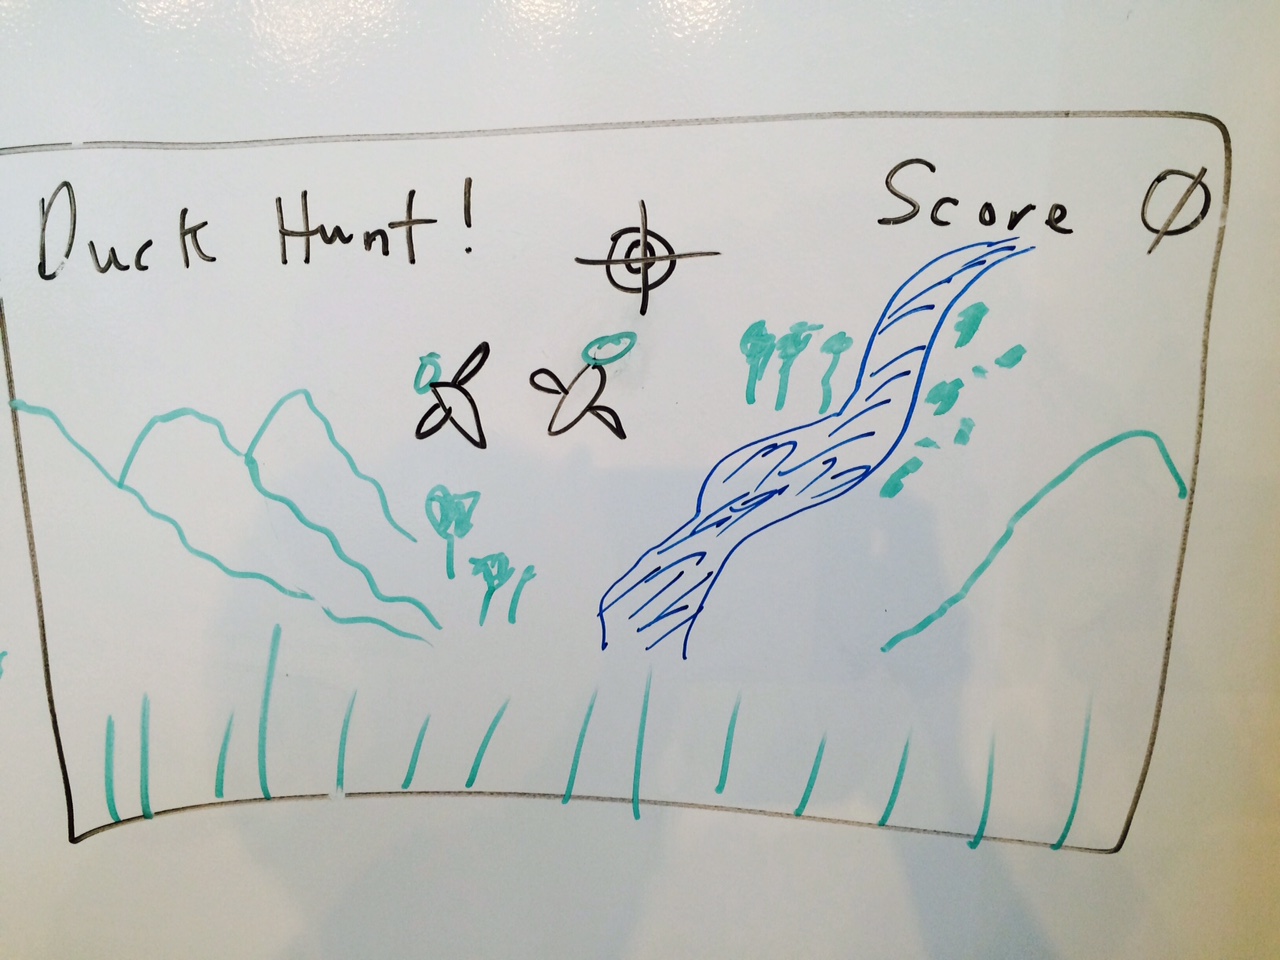 Duck Hunt!
Score 0